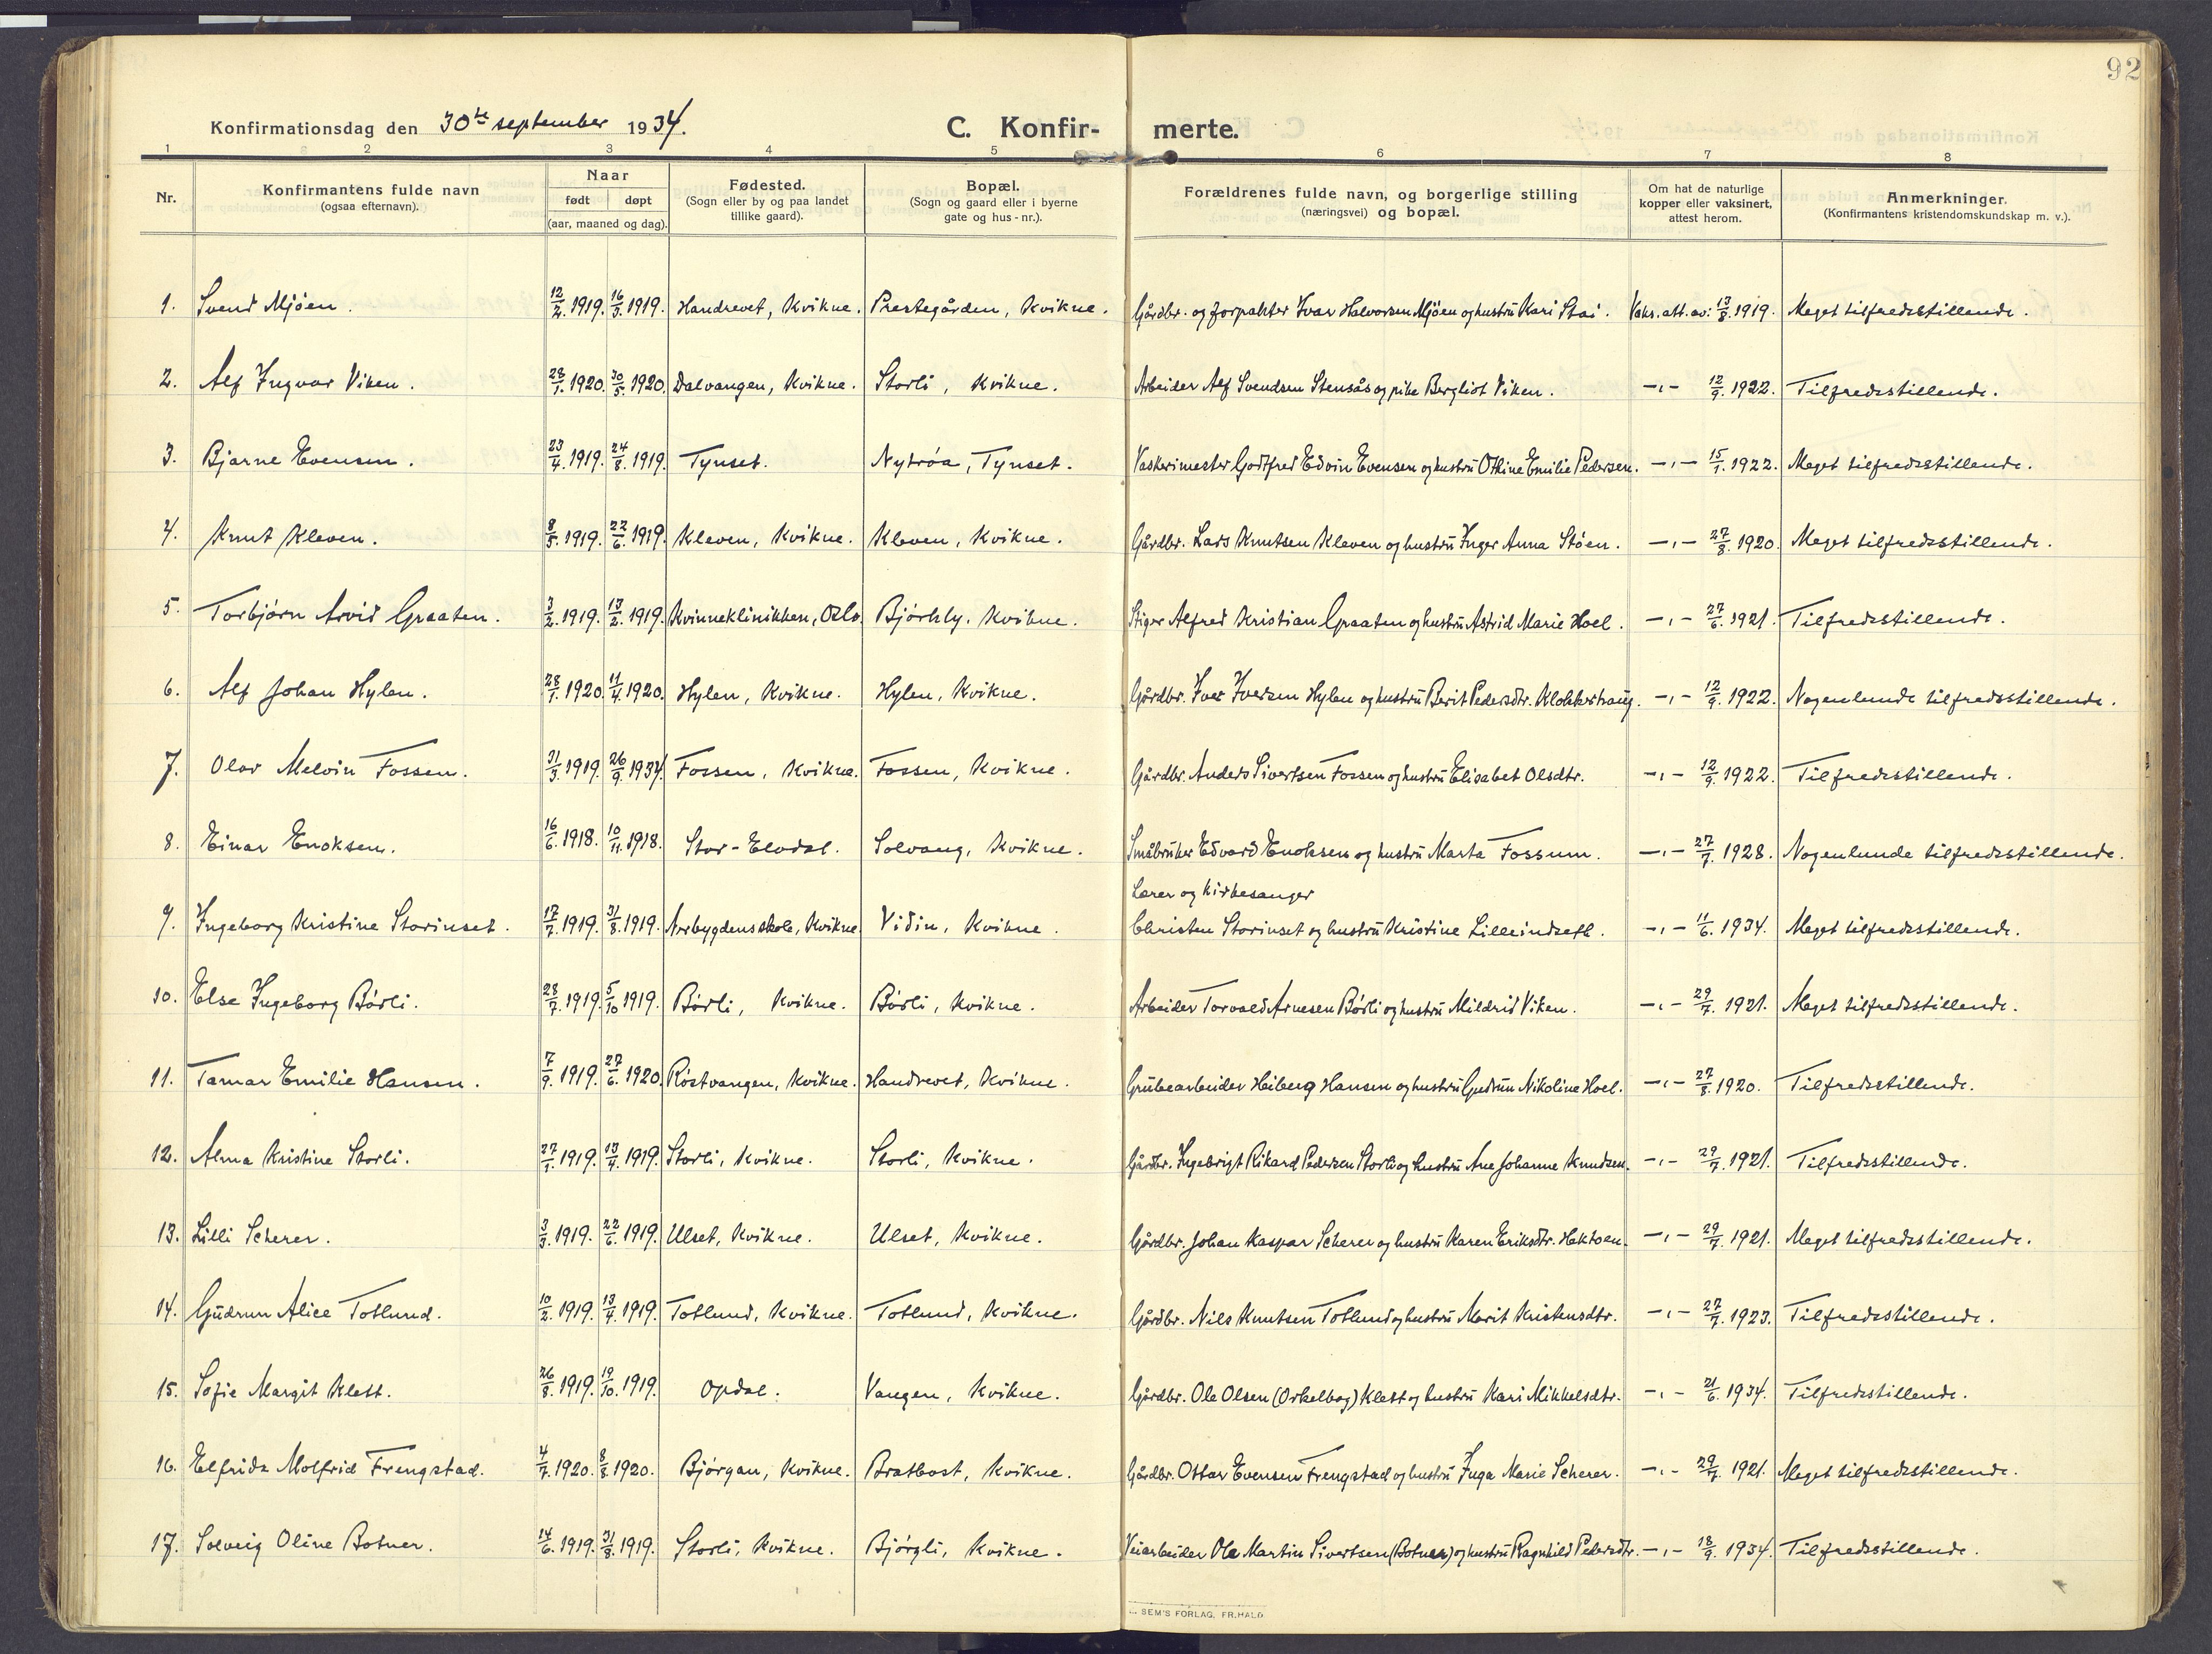 92
Konfirmationsdag den 30te september 1934. C. Konfir- merte.
1 2 3 4 5 6 7 8
Nr. Konfirmantens fulde navn (ogsaa efternavn). Naar født døpt (aar, maaned og dag). Fødested. (Sogn eller by og paa landet tillike gaard). Bopæl. (Sogn og gaard eller i byerne gate og hus-nr.). Forældrenes fulde navn, og borgerlige stilling (næringsvei) og bopæl. Om hat de naturlige kopper eller vaksinert, attest herom. Anmerkninger. (Konfirmantens kristendomskundskap m. v.).
1. Svend Mjöen. 12/2. 1919. 16/3. 1919. Handrevet, Kvikne. Prestegården, Kvikne. Gårdbr. og forpakter Ivar Halvorsen Mjöen og hustru Kari Stai. Vaks. att. av: 13/8. 1919. Meget tilfredsstillende.
2. Alf Ingvar Viken. 28/1. 1920. 30/5. 1920. Dalvangen, Kvikne. Storli, Kvikne. Arbeider Alf Svendsen Stensås og pike Bergliot Viken. -,- 12/9. 1922. Tilfredsstillende.
3. Bjarne Evensen. 23/4. 1919. 24/8. 1919. Tynset. Nytrøa, Tynset. Vaskerimester Godtfred Edvin Evensen og hustru Othine Emilie Pedersen. -,- 15/1. 1922. Meget tilfredsstillende.
4. Knut Kleven. 8/5. 1919. 22/6. 1919. Kleven, Kvikne. Kleven, Kvikne. Gårdbr. Lars Knutsen Kleven og hustru Inger Anna Stöen. -,- 27/8. 1920. Meget tilfredsstillende.
5. Torbjörn Arvid Graaten. 3/2. 1919. 13/2. 1919. Kvinneklinikken, Oslo. Björkly. Kvikne. Stiger Alfred Kristian Graaten og hustru Astrid Marie Hoel. -,- 27/6. 1921. Tilfredsstillende.
6. Alf Johan Hylen. 28/1. 1920. 11/4. 1920. Hylen, Kvikne. Hylen, Kvikne. Gårdbr. Iver Iversen Hylen og hustru Berit Pedersdtr. Klokkerhaug. -,- 12/9. 1922. Nogenlunde tilfredsstillende.
7. Olav Melvin Fossen. 31/3. 1919. 26/9. 1934. Fossen, Kvikne. Fossen, Kvikne. Gårdbr. Anders Sivertsen Fossen og hustru Elisabet Olsdtr. -,- 12/9. 1922. Tilfredsstillende.
8. Einar Enoksen. 16/6. 1918. 10/11. 1918. Stor-Elvdal. Solvang, Kvikne. Småbruker Edvard Enoksen og hustru Marta Fossum. -,- 27/7. 1928. Nogenlunde tilfredsstillende.
Lærer og kirkesanger
9. Ingeborg Kristine Storinset. 17/7. 1919. 31/8. 1919. Norbygdens skole, Kvikne. Vidin, Kvikne. Christen Storinset og hustru Kristine Lilleindseth. -,- 11/6. 1934. Meget tilfredsstillende.
10. Else Ingeborg Börli. 28/7. 1919. 5/10. 1919. Börli, Kvikne. Börli, Kvikne. Arbeider Torvald Arnesen Börli og hustru Mildrid Viken. -,- 29/7. 1921. Meget tilfredsstillende.
11. Tamar Emilie Hansen. 7/9. 1919. 27/6. 1920. Röstvangen, Kvikne. Handrevet, Kvikne. Grubearbeider Heiberg Hansen og hustru Gudrun Nikoline Hoel. -,- 27/8. 1920. Tilfredsstillende.
12. Alma Kristine Storli. 27/1. 1919. 13/4. 1919. Storli, Kvikne. Storli, Kvikne. Gårdbr. Ingebrigt Rikard Pedersen Storli og hustru Ane Johanne Knudsen. -,- 29/7. 1921. Tilfredsstillende.
13. Lilli Scherer. 3/3. 1919. 22/6. 1919. Ulset, Kvikne. Ulset, Kvikne. Gårdbr. Johan Kaspar Scherer og hustru Karen Eriksdtr. Hektoen. -,- 29/7. 1921. Meget tilfredsstillende.
14. Gudrun Alice Totlund. 10/2. 1919. 13/4. 1919. Totlund, Kvikne. Totlund, Kvikne. Gårdbr. Nils Knutsen Totlund og hustru Marit Kristensdtr. -,- 27/7. 1923. Tilfredsstillende.
15. Sofie Margit Klett. 26/8. 1919. 19/10. 1919. Opdal. Vangen, Kvikne. Gårdbr. Ole Olsen (Orkelbog) Klett og hustru Kari Mikkelsdtr. -,- 21/6. 1934. Tilfredsstillende.
16. Elfrida Molfrid Frengstad. 4/7. 1920. 8/8. 1920. Björgan, Kvikne. Bratbost, Kvikne. Gårdbr. Ottar Evensen Frengstad og hustru Inga Marie Scherer. -,- 29/7. 1921. Meget tilfredsstillende.
17. Solveig Oline Botner. 14/6. 1919. 31/8. 1919. Storli, Kvikne. Björgli, Kvikne. Veiarbeider Ole Martin Sivertsen (Botner) og hustru Ragnhild Pedersdtr. -,- 18/9. 1934. Tilfredsstillende.
SEM'S FORLAG, FR.HALD